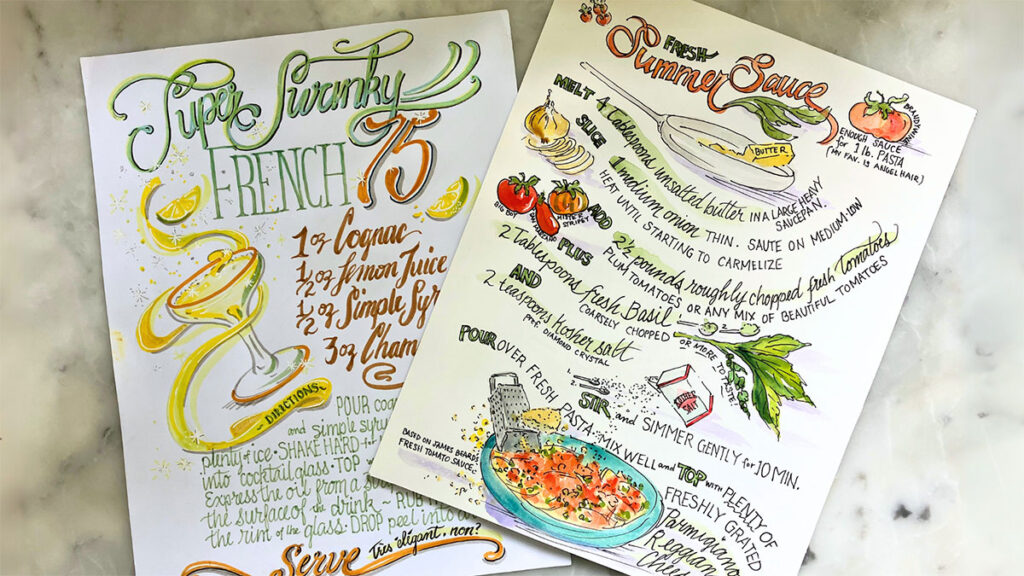 Super Swanky
FRENCH 75
1 oz Cognac
1/2 oz Lemon Juice
1/2 oz Simple Syr
3 oz Cham
DIRECTIONS
POUR cog
and simple syru
plenty of ice · SHAKE HARD
into cocktail glass · TOP
Express the oil from a
the surface of the drink ~ RUB
the rim of the glass · DROP peel into
Serve
Très élégant, non?
FRESH
Summer Sauce
BRANDYWINE
ENOUGH SAUCE
for 1 lb. PASTA
(MY FAV. IS ANGEL HAIR)
BUTTER
MELT 4 Tablespoons unsalted butter IN A LARGE HEAVY
SAUCEPAN.
SLICE 1 medium onion THIN. SAUTE ON MEDIUM-LOW
HEAT UNTIL STARTING TO CARMELIZE
BIG BOY
MISTER
STRIPEY
ADD 2 1/2 pounds roughly chopped fresh Tomatoes
PLUM TOMATOES OR ANY MIX OF BEAUTIFUL TOMATOES
PLUS
2 Tablespoons fresh Basil
COARSELY CHOPPED
OR MORE TO TASTE!
AND
2 teaspoons kosher salt
PREF. DIAMOND CRYSTAL
1.
2.
SALT
STIR and SIMMER GENTLY for 10 MIN.
POUR OVER FRESH PASTA. MIX WELL and TOP WITH PLENTY OF
FRESHLY GRATED
Parmigiano
Reggiano
BASED ON JAMES BEARD'S
FRESH TOMATO SAUCE!